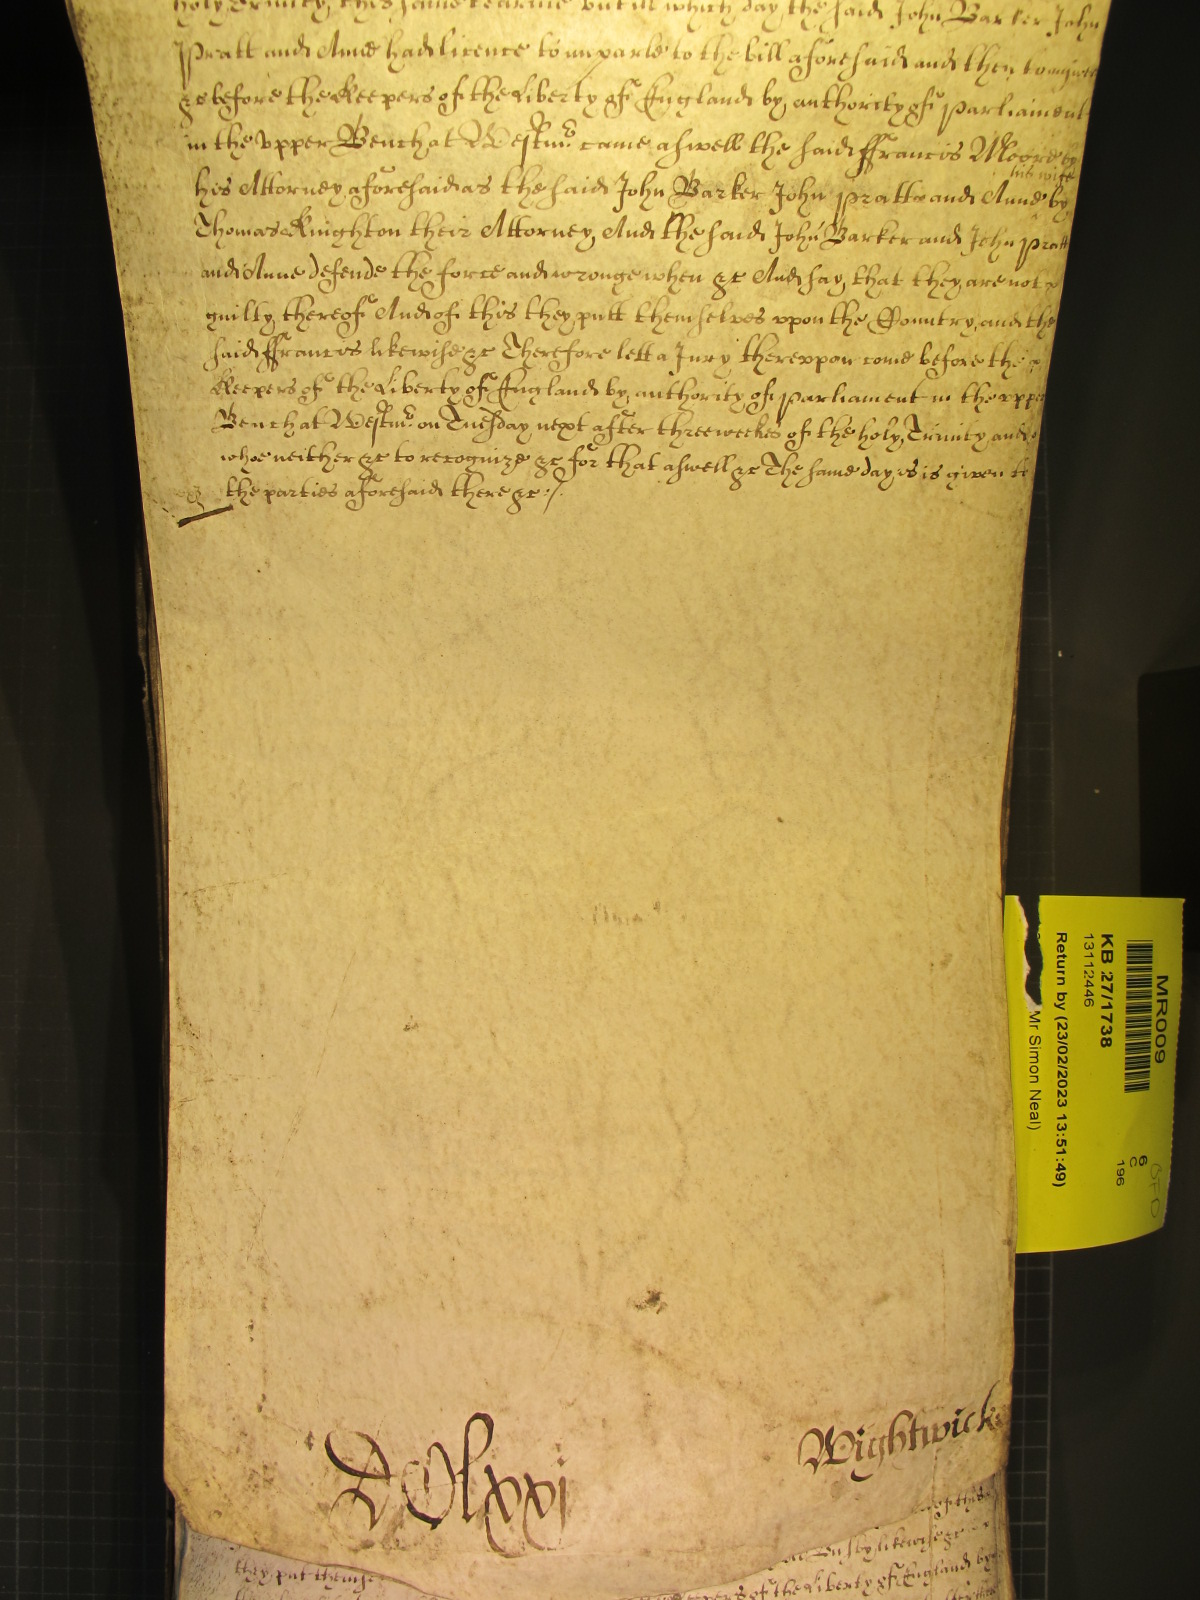 holy Trinity this same tearme vntill which day the said John Barker John
Pratt and Anne had licence to imparle to the bill aforesaid and then to answer
&c before the Keepers of the Liberty of England by authority of Parliament
in the vpper Bench at Westmr. came aswell the said ffrancis Moore by
his Attorney aforesaid as the said John Barker John Pratt and Anne his wife by
Thomas Knighton their Attorney And the said John Barker and John Pratt
and Anne defende the force and wronge when &c And say that they are not
guilty thereof And of this they putt themselves vpon the Countrey and the
said ffrancis likewise &c Therefore lett a Jury therevpon come before the
Keepers of the Liberty of England by authority of Parliament in the vpper
Bench at Westmr. on Tuesday next after three weekes of the holy Trinity and
whoe neither &c to recognize &c for that aswell &c The same day is given to
the parties aforesaid there &c ./.
DClxxj
Wightwick
likewise &c
they put themse
Keepers of the Liberty of England by
MR009
KB 27/1738
13112446
Return by (23/02/2023 13:51:49)
Mr Simon Neal)
6
C
196